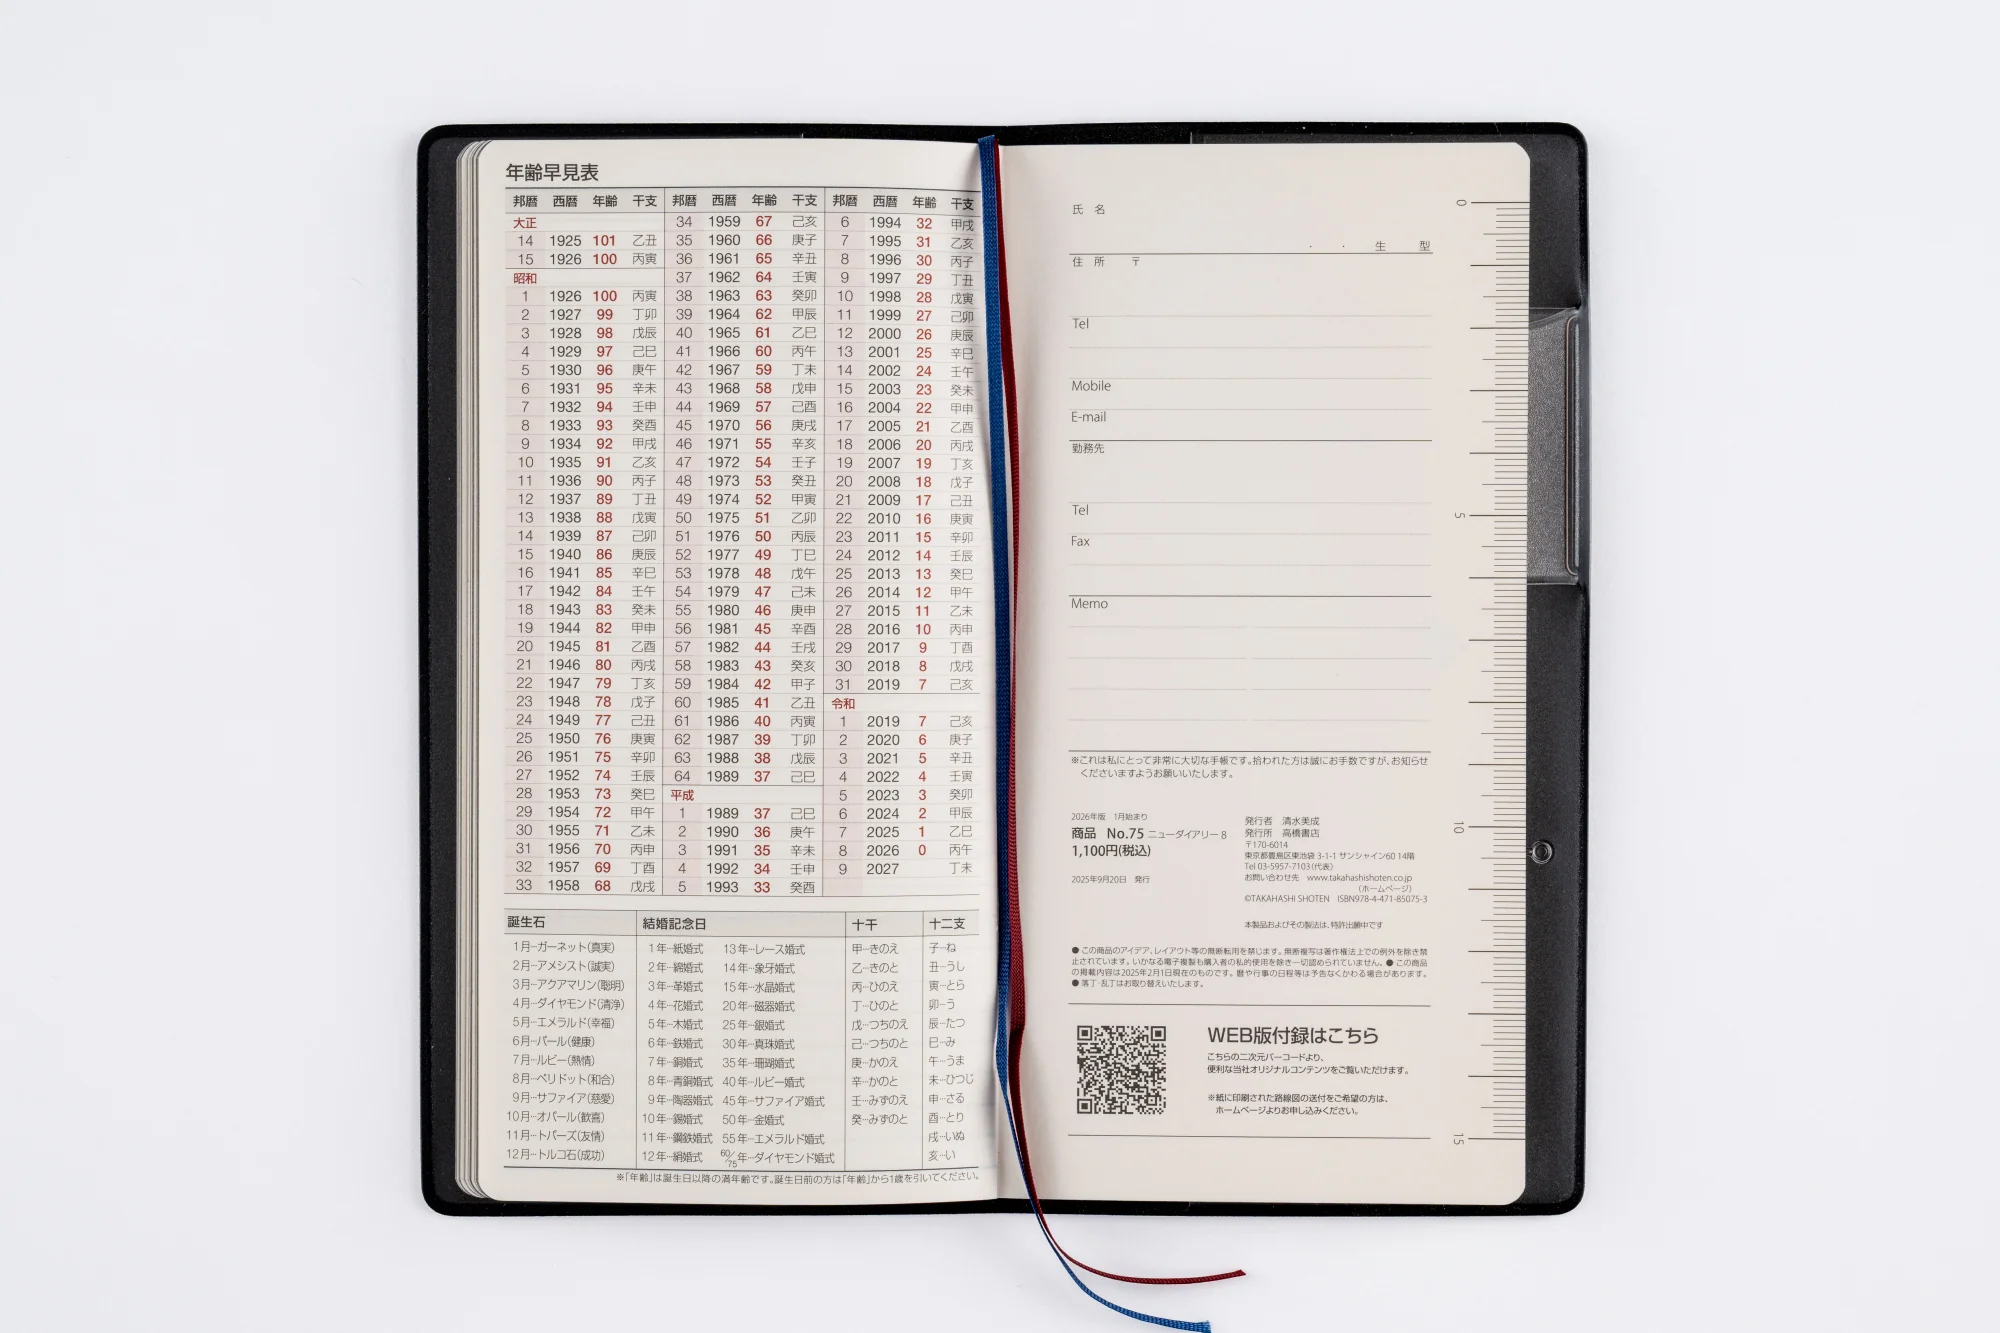 年齢早見表
邦暦 西暦 年齢 干支
大正
14 1925 101 乙丑
15 1926 100 丙寅
昭和
1 1926 100 丙寅
2 1927 99 丁卯
3 1928 98 戊辰
4 1929 97 己巳
5 1930 96 庚午
6 1931 95 辛未
7 1932 94 壬申
8 1933 93 癸酉
9 1934 92 甲戌
10 1935 91 乙亥
11 1936 90 丙子
12 1937 89 丁丑
13 1938 88 戊寅
14 1939 87 己卯
15 1940 86 庚辰
16 1941 85 辛巳
17 1942 84 壬午
18 1943 83 癸未
19 1944 82 甲申
20 1945 81 乙酉
21 1946 80 丙戌
22 1947 79 丁亥
23 1948 78 戊子
24 1949 77 己丑
25 1950 76 庚寅
26 1951 75 辛卯
27 1952 74 壬辰
28 1953 73 癸巳
29 1954 72 甲午
30 1955 71 乙未
31 1956 70 丙申
32 1957 69 丁酉
33 1958 68 戊戌
邦暦 西暦 年齢 干支
34 1959 67 己亥
35 1960 66 庚子
36 1961 65 辛丑
37 1962 64 壬寅
38 1963 63 癸卯
39 1964 62 甲辰
40 1965 61 乙巳
41 1966 60 丙午
42 1967 59 丁未
43 1968 58 戊申
44 1969 57 己酉
45 1970 56 庚戌
46 1971 55 辛亥
47 1972 54 壬子
48 1973 53 癸丑
49 1974 52 甲寅
50 1975 51 乙卯
51 1976 50 丙辰
52 1977 49 丁巳
53 1978 48 戊午
54 1979 47 己未
55 1980 46 庚申
56 1981 45 辛酉
57 1982 44 壬戌
58 1983 43 癸亥
59 1984 42 甲子
60 1985 41 乙丑
61 1986 40 丙寅
62 1987 39 丁卯
63 1988 38 戊辰
64 1989 37 己巳
平成
1 1989 37 己巳
2 1990 36 庚午
3 1991 35 辛未
4 1992 34 壬申
5 1993 33 癸酉
邦暦 西暦 年齢 干支
6 1994 32 甲戌
7 1995 31 乙亥
8 1996 30 丙子
9 1997 29 丁丑
10 1998 28 戊寅
11 1999 27 己卯
12 2000 26 庚辰
13 2001 25 辛巳
14 2002 24 壬午
15 2003 23 癸未
16 2004 22 甲申
17 2005 21 乙酉
18 2006 20 丙戌
19 2007 19 丁亥
20 2008 18 戊子
21 2009 17 己丑
22 2010 16 庚寅
23 2011 15 辛卯
24 2012 14 壬辰
25 2013 13 癸巳
26 2014 12 甲午
27 2015 11 乙未
28 2016 10 丙申
29 2017 9 丁酉
30 2018 8 戊戌
31 2019 7 己亥
令和
1 2019 7 己亥
2 2020 6 庚子
3 2021 5 辛丑
4 2022 4 壬寅
5 2023 3 癸卯
6 2024 2 甲辰
7 2025 1 乙巳
8 2026 0 丙午
9 2027 丁未
誕生石
1月…ガーネット(真実)
2月…アメシスト(誠実)
3月…アクアマリン(聡明)
4月…ダイヤモンド(清浄)
5月…エメラルド(幸福)
6月…パール(健康)
7月…ルビー(熱情)
8月…ペリドット(和合)
9月…サファイア(慈愛)
10月…オパール(歓喜)
11月…トパーズ(友情)
12月…トルコ石(成功)
結婚記念日
1年…紙婚式 13年…レース婚式
2年…綿婚式 14年…象牙婚式
3年…革婚式 15年…水晶婚式
4年…花婚式 20年…磁器婚式
5年…木婚式 25年…銀婚式
6年…鉄婚式 30年…真珠婚式
7年…銅婚式 35年…珊瑚婚式
8年…青銅婚式 40年…ルビー婚式
9年…陶器婚式 45年…サファイア婚式
10年…錫婚式 50年…金婚式
11年…鋼鉄婚式 55年…エメラルド婚式
12年…絹婚式 60/75年…ダイヤモンド婚式
十干
甲…きのえ
乙…きのと
丙…ひのえ
丁…ひのと
戊…つちのえ
己…つちのと
庚…かのえ
辛…かのと
壬…みずのえ
癸…みずのと
十二支
子…ね
丑…うし
寅…とら
卯…う
辰…たつ
巳…み
午…うま
未…ひつじ
申…さる
酉…とり
戌…いぬ
亥…い
※「年齢」は誕生日以降の満年齢です。誕生日前の方は「年齢」から1歳を引いてください。
氏 名
・ ・ 生 型
住 所 〒
Tel
Mobile
E-mail
勤務先
Tel
Fax
Memo
※これは私にとって非常に大切な手帳です。拾われた方は誠にお手数ですが、お知らせ
くださいますようお願いいたします。
2026年版 1月始まり
商品 No.75 ニューダイアリー 8
1,100円(税込)
2025年9月20日 発行
発行者 清水美成
発行所 高橋書店
〒170-6014
東京都豊島区東池袋 3-1-1 サンシャイン60 14階
Tel 03-5957-7103(代表)
お問い合わせ先 www.takahashishoten.co.jp
(ホームページ)
©TAKAHASHI SHOTEN ISBN978-4-471-85075-3
本製品およびその製法は、特許出願中です
● この商品のアイデア、レイアウト等の無断転用を禁じます。無断複写は著作権法上での例外を除き禁
止されています。いかなる電子複製も購入者の私的使用を除き一切認められていません。● この商品
の掲載内容は2025年2月1日現在のものです。暦や行事の日程等は予告なくかわる場合があります。
● 落丁・乱丁はお取り替えいたします。
WEB版付録はこちら
こちらの二次元バーコードより、
便利な当社オリジナルコンテンツをご覧いただけます。
※紙に印刷された路線図の送付をご希望の方は、
ホームページよりお申し込みください。
0
5
10
15